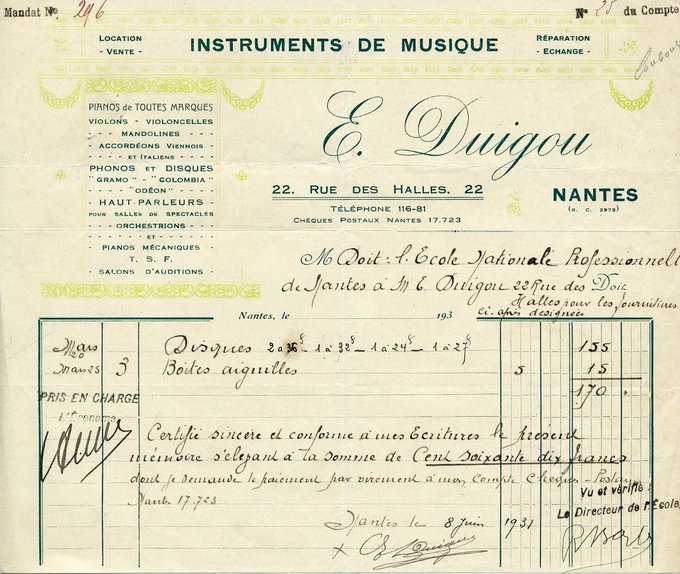 Mandat No 296
No 25 du Compte
LOCATION
- VENTE -
INSTRUMENTS DE MUSIQUE
RÉPARATION
- ECHANGE -
PIANOS de TOUTES MARQUES
VIOLONS - VIOLONCELLES
MANDOLINES
ACCORDÉONS VIENNOIS
ET ITALIENS
PHONOS ET DISQUES
"GRAMO" - "COLOMBIA"
"ODÉON"
HAUT-PARLEURS
POUR SALLES DE SPECTACLES
ORCHESTRIONS
ET
PIANOS MÉCANIQUES
T. S. F.
SALONS D'AUDITIONS
E. Duigou
22, RUE DES HALLES, 22
TÉLÉPHONE 116-81
CHÈQUES POSTAUX NANTES 17.723
NANTES
(R. C. 2572)
M Doit: l'Ecole Nationale Professionnelle
de Nantes à M E. Duigou 22 Rue des Doit
Halles pour les fournitures
ci-après designées
Nantes, le 193
Mars 20 Disques 2 à 36 - 1 à 32 - 1 à 24 - 1 à 27 155
Mars 25 3 Boites aiguilles 5 15
170
PRIS EN CHARGE
L'Économe
Certifié sincère et conforme à mes Ecritures le présent
mémoire s'élevant à la somme de Cent soixante dix francs
dont je demande le paiement par virement à mon Compte Chèques-Postaux
Nantes 17.723
Vu et vérifié:
Le Directeur de l'École
Nantes le 8 Juin 1931
E. Duigou